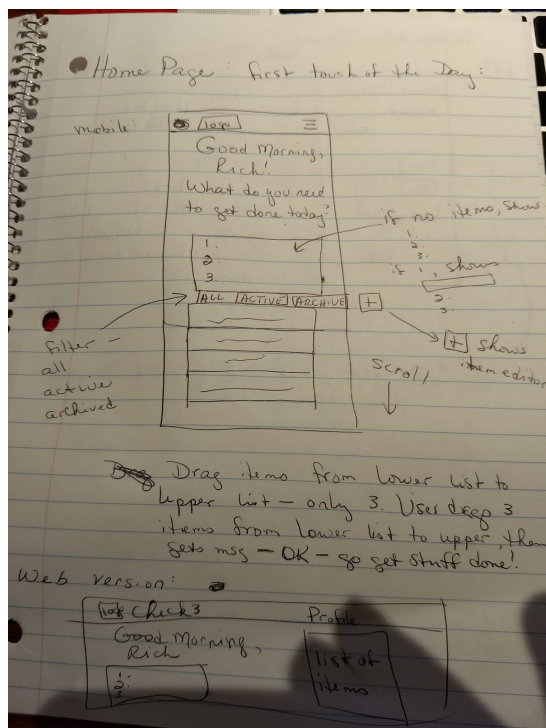 Home Page: first touch of the Day:
mobile:
logo
Good Morning,
Rich!
What do you need
to get done today?
1.
2.
3.
if no items, shows
1.
2.
3.
if 1, shows
2.
3.
ALL ACTIVE ARCHIVE +
+ shows
item editor
filter -
all
active
archived
scroll
Drag items from lower list to
upper list - only 3. User drags 3
items from lower list to upper, then
gets msg - OK - go get stuff done!
Web version:
logo Check3 Profile
Good Morning,
Rich
1.
2.
3.
list of
items